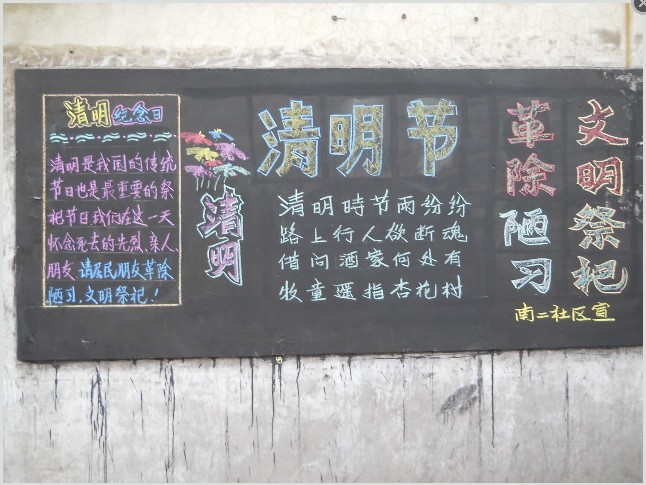 清明纪念日
清明是我国的传统
节日也是最重要的祭
祀节日我们在这一天
怀念死去的先烈、亲人、
朋友.请居民朋友革除
陋习.文明祭祀!
清明
清明节
清明時节雨纷纷
路上行人欲断魂
借问酒家何处有
牧童遥指杏花村
文明祭祀
革除陋习
南二社区宣